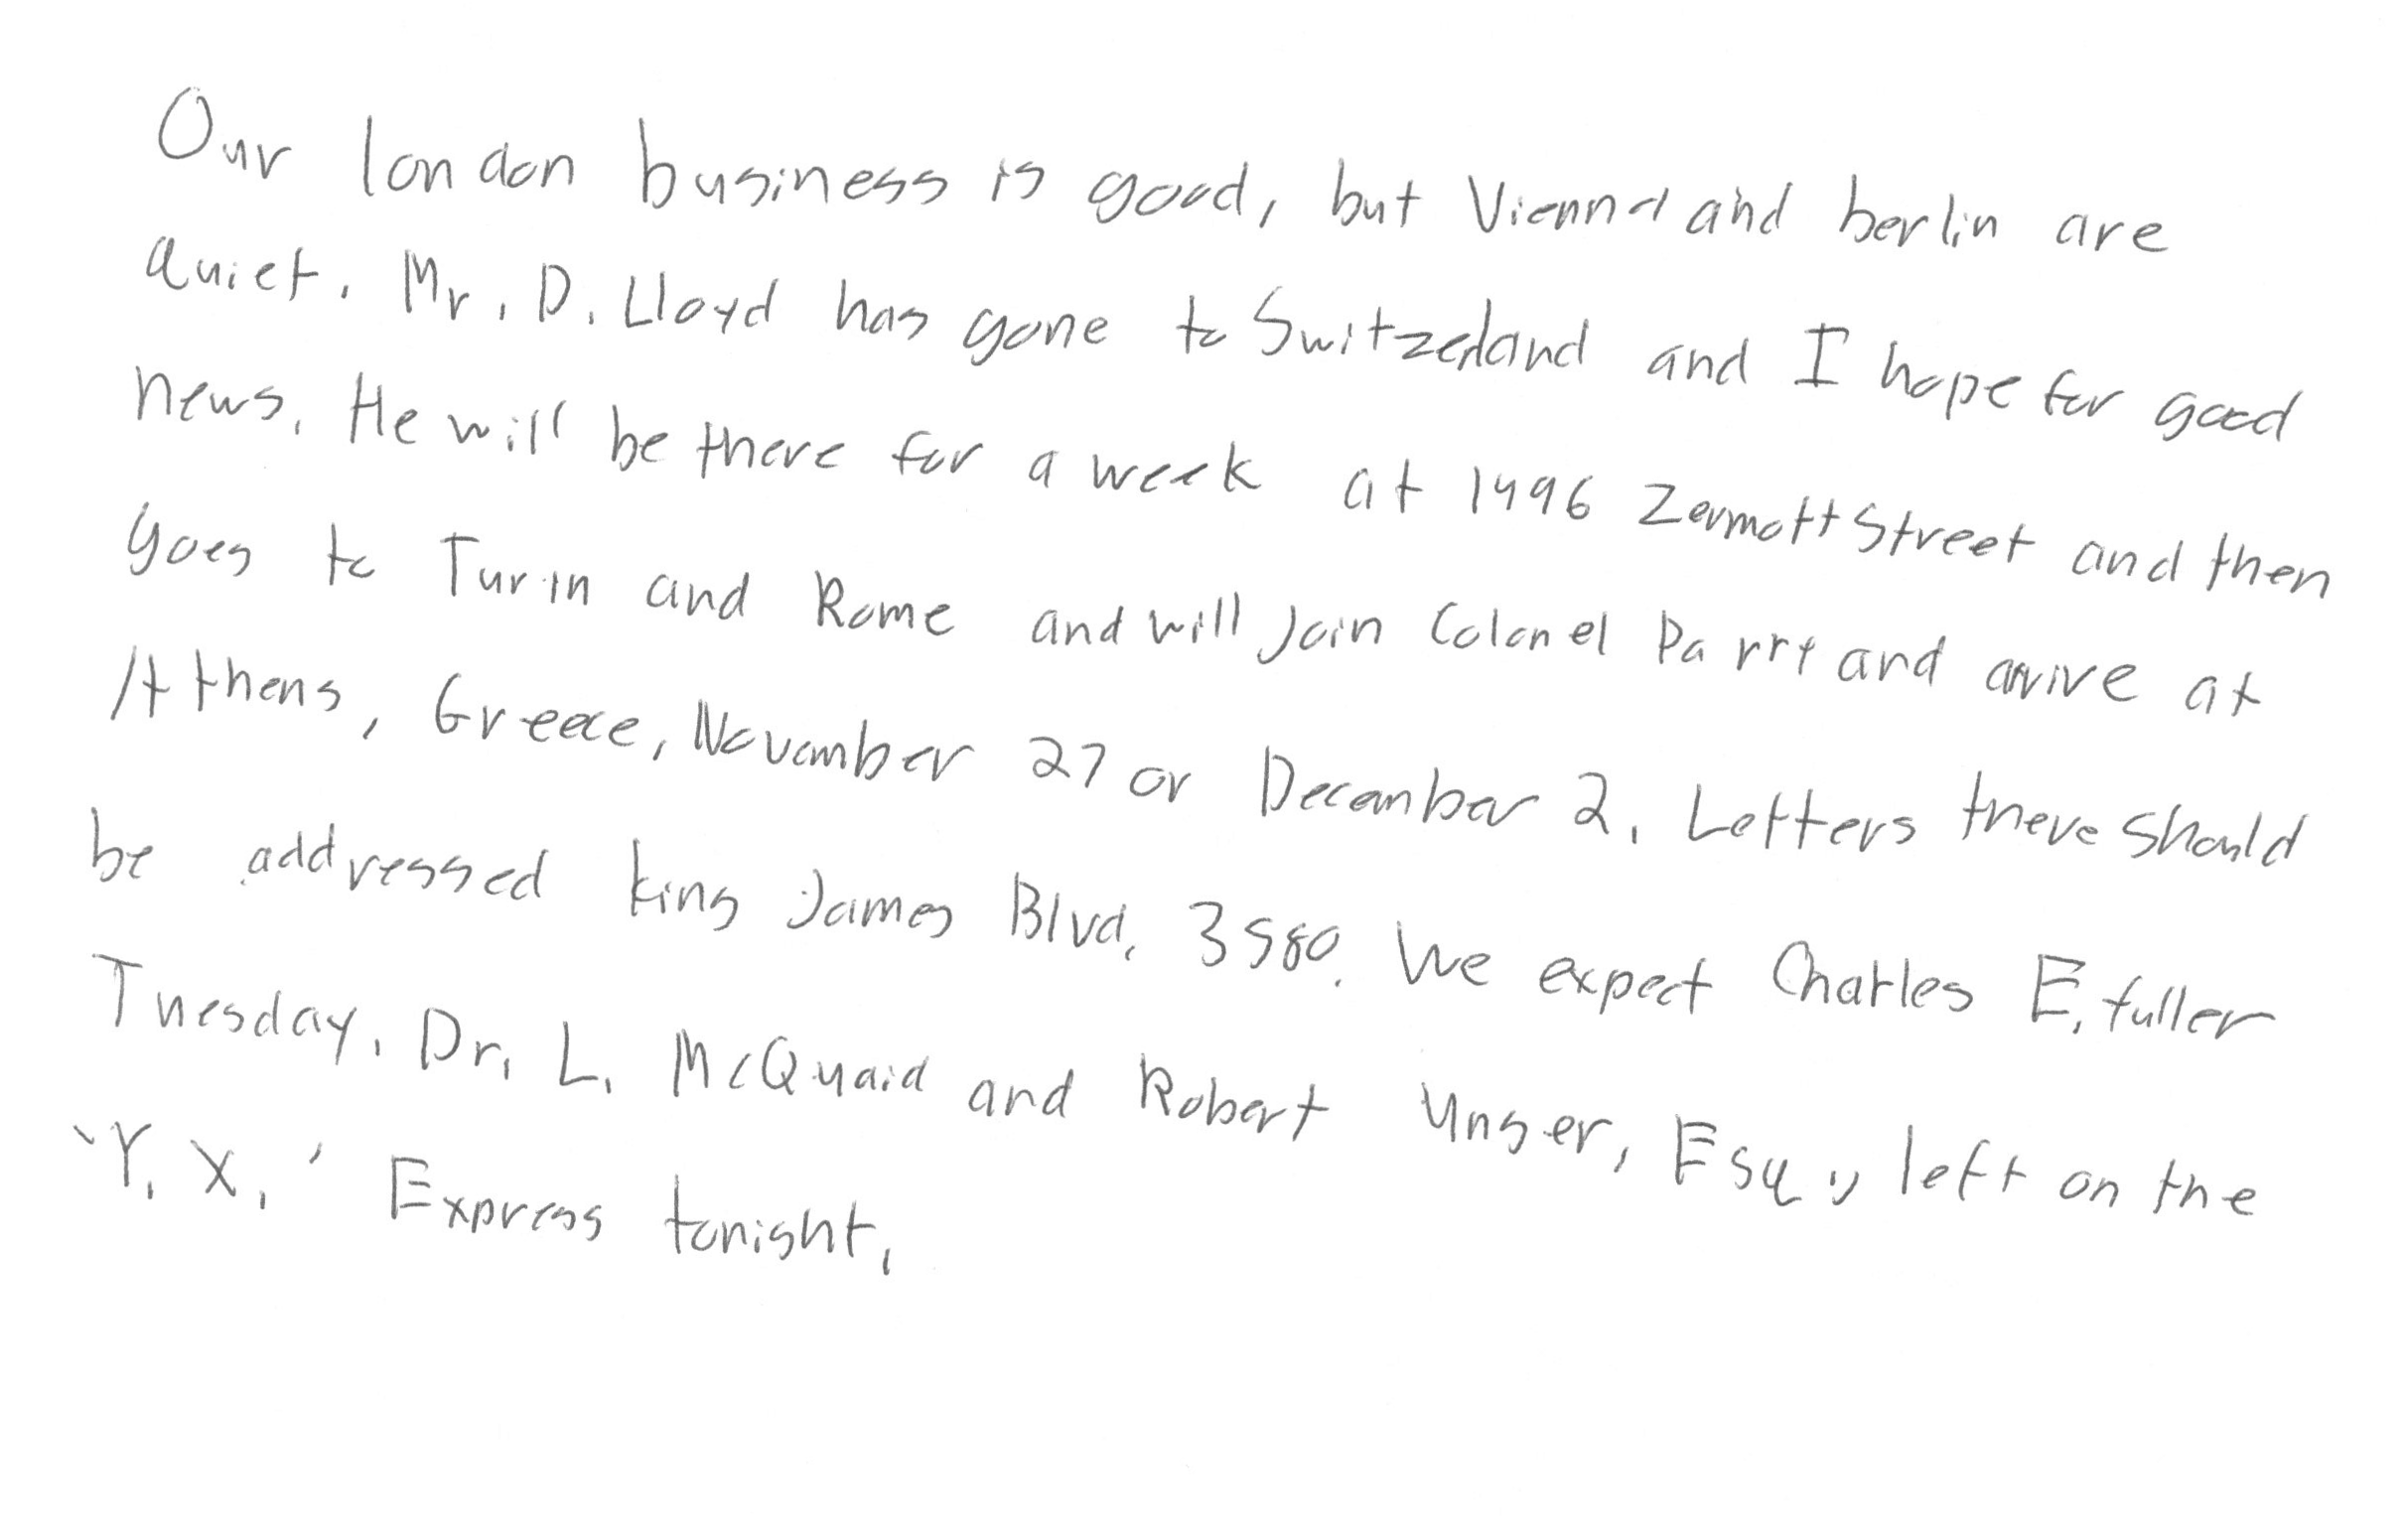 Our london business is good, but Vienna and berlin are
quiet. Mr. D. Lloyd has gone to Switzerland and I hope for good
news. He will be there for a week at 1496 Zermott Street and then
goes to Turin and Rome and will join Colonel Parry and arrive at
Athens, Greece, November 27 or December 2. Letters there should
be addressed king James Blvd. 3580. We expect Charles E. fuller
Tuesday. Dr. L. McQuaid and Robert Unger, Esq., left on the
'Y. X.' Express tonight.